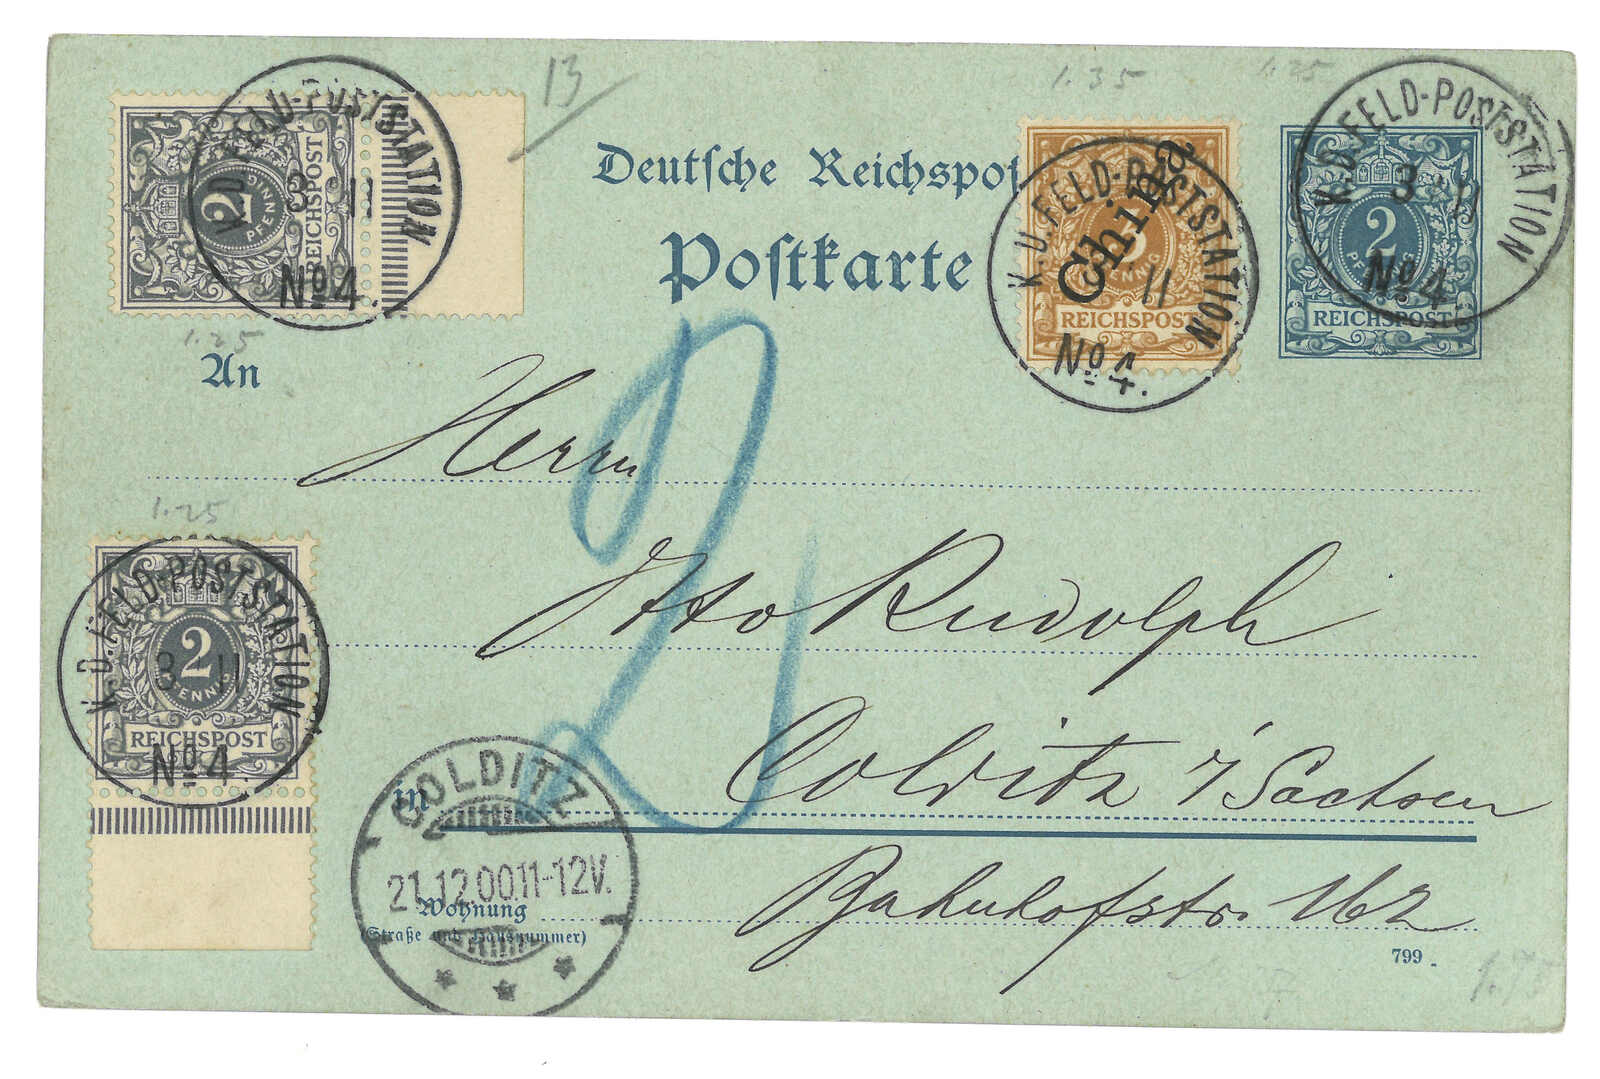 13
1.35
1.25
Deutsche Reichspost
Postkarte
2
PFENNIG
REICHSPOST
K.D. FELD-POSTSTATION
3 11
No 4.
1.25
3
PFENNIG
REICHSPOST
China
K.D. FELD-POSTSTATION
11
No 4.
2
PFENNIG
REICHSPOST
K.D. FELD-POSTSTATION
3 11
No 4.
An
Herrn
Otto Rudolph
1.25
2
PFENNIG
REICHSPOST
K.D. FELD-POSTSTATION
3 11
No 4.
2
in Colditz i/Sachsen
COLDITZ
21.12.00.11-12V.
Wohnung Bahnhofstr. 162
(Straße und Hausnummer)
799
1.75